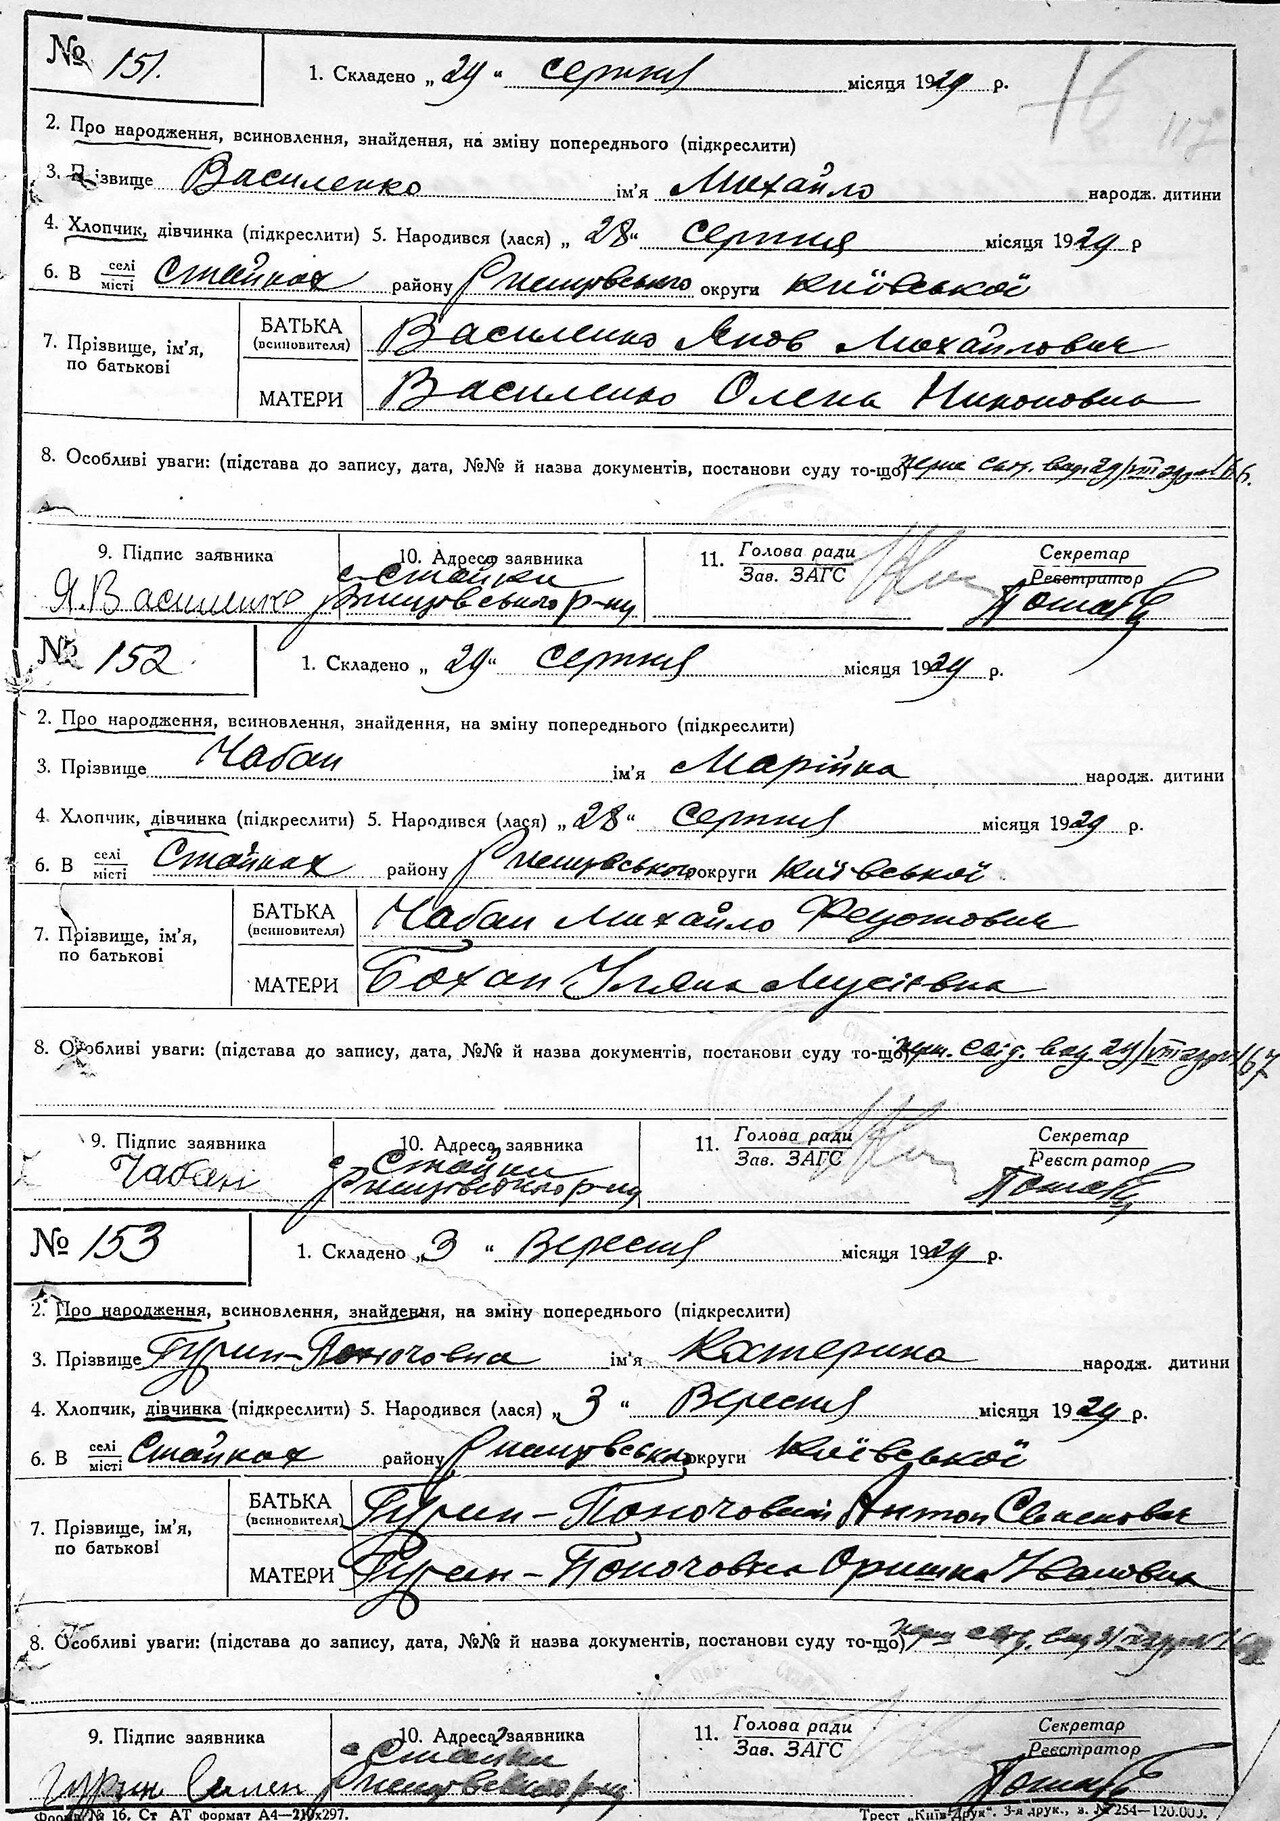 № 151.
1. Складено „ 29 “ серпня місяця 1929 р.
16
117
2. Про народження, всиновлення, знайдення, на зміну попереднього (підкреслити)
3. Прізвище Василенко ім'я Михайло народж. дитини
4. Хлопчик, дівчинка (підкреслити) 5. Народився (лася) „ 28 “ серпня місяця 1929 р
6. В селі/місті Стайках району Ржищівського округи Київської
7. Прізвище, ім'я, по батькові
БАТЬКА (всиновителя) Василенко Яков Михайлович
МАТЕРИ Василенко Олена Никоновна
8. Особливі уваги: (підстава до запису, дата, №№ й назва документів, постанови суду то-що)
9. Підпис заявника
10. Адреса заявника
11. Голова ради
Зав. ЗАГС
Секретар
Реєстратор
Я. Василенко
с Стайки
Ржищівського р-ну
№ 152
1. Складено „ 29 “ серпня місяця 1929 р.
2. Про народження, всиновлення, знайдення, на зміну попереднього (підкреслити)
3. Прізвище Чабан ім'я Марійка народж. дитини
4. Хлопчик, дівчинка (підкреслити) 5. Народився (лася) „ 28 “ серпня місяця 1929 р.
6. В селі/місті Стайках району Ржищівського округи Київської
7. Прізвище, ім'я, по батькові
БАТЬКА (всиновителя) Чабан Михайло Федотович
МАТЕРИ Бохан Уляна Мусієвна
8. Особливі уваги: (підстава до запису, дата, №№ й назва документів, постанови суду то-що)
9. Підпис заявника
10. Адреса заявника
11. Голова ради
Зав. ЗАГС
Секретар
Реєстратор
Чабан
с Стайки
Ржищівського р-ну
№ 153
1. Складено „ 3 “ Вересня місяця 1929 р.
2. Про народження, всиновлення, знайдення, на зміну попереднього (підкреслити)
3. Прізвище Гурин-Поночовна ім'я Катерина народж. дитини
4. Хлопчик, дівчинка (підкреслити) 5. Народився (лася) „ 3 “ Вересня місяця 1929 р.
6. В селі/місті Стайках району Ржищівського округи Київської
7. Прізвище, ім'я, по батькові
БАТЬКА (всиновителя) Гурин-Поночовний Антон Семенович
МАТЕРИ Гурин-Поночовна Оришка Ивановна
8. Особливі уваги: (підстава до запису, дата, №№ й назва документів, постанови суду то-що)
9. Підпис заявника
10. Адреса заявника
11. Голова ради
Зав. ЗАГС
Секретар
Реєстратор
с Стайки
Ржищівського р-ну
Форма № 16. Ст АТ формат А4—210х297.
Трест „Київ-Друк“. 3-я друк., з. № 254—120.000.